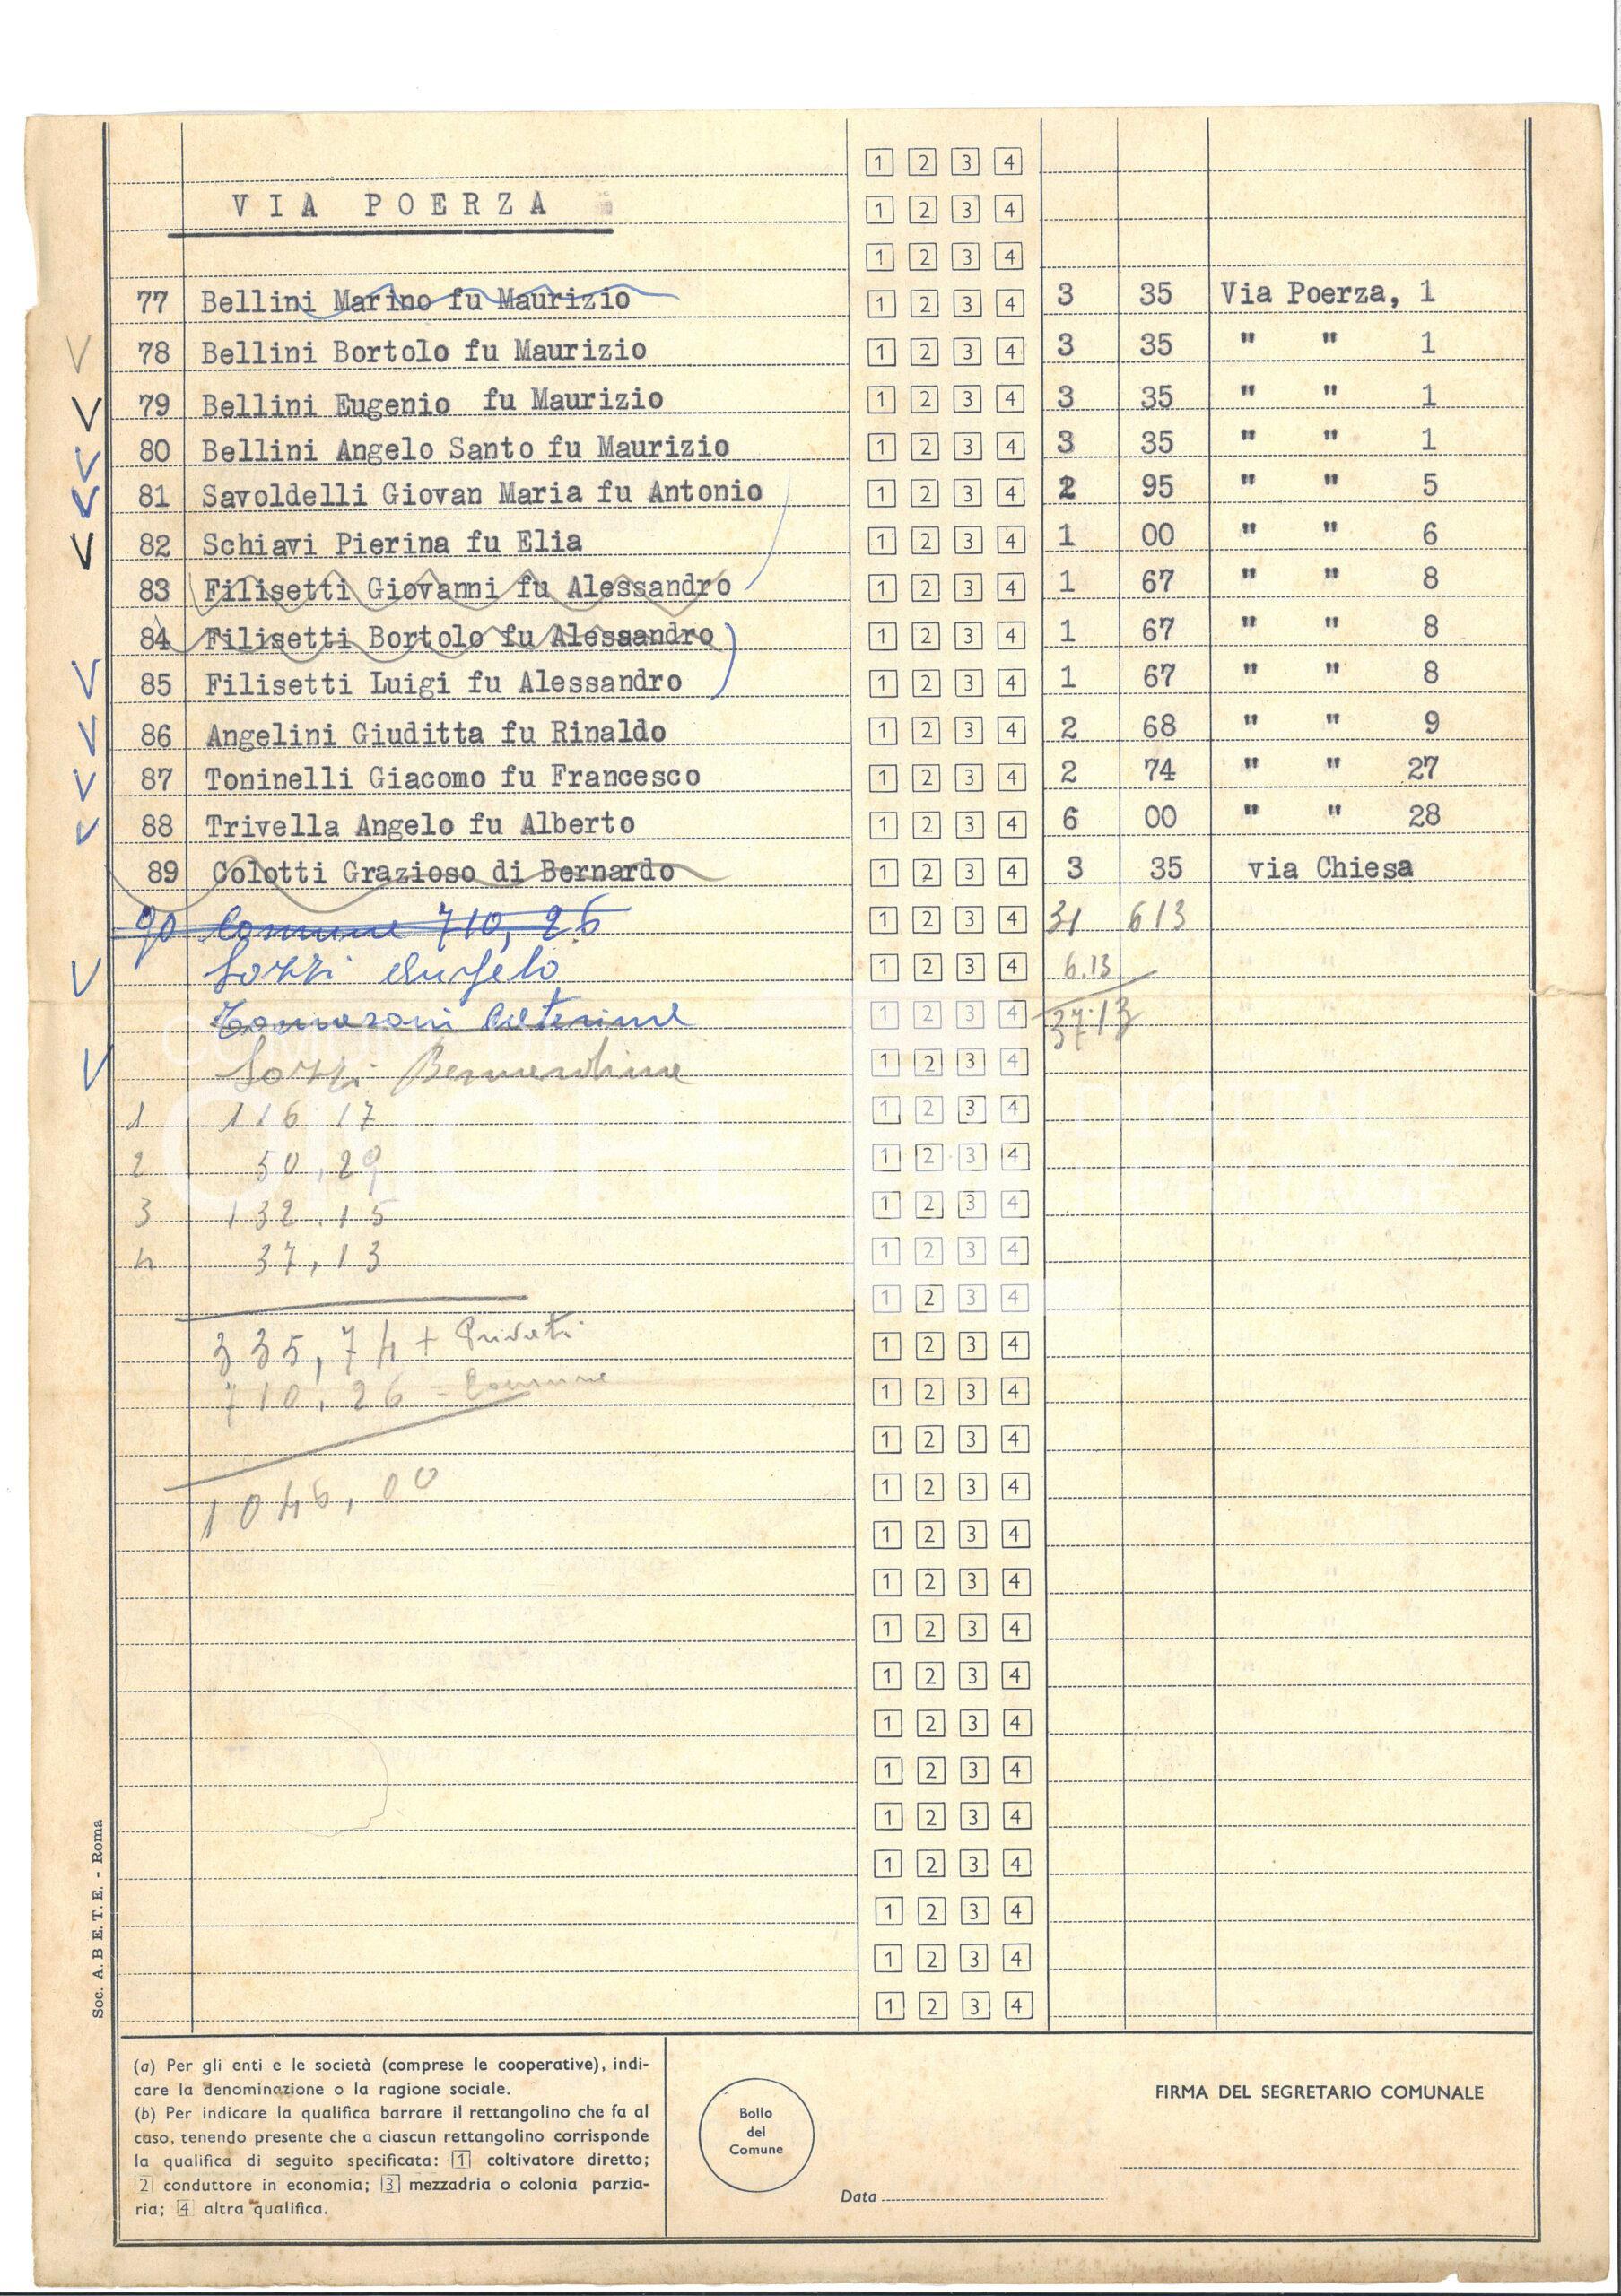 1 2 3 4
VIA POERZA 1 2 3 4
1 2 3 4
77 Bellini Marino fu Maurizio 1 2 3 4 3 35 Via Poerza, 1
78 Bellini Bortolo fu Maurizio 1 2 3 4 3 35 " " 1
79 Bellini Eugenio fu Maurizio 1 2 3 4 3 35 " " 1
80 Bellini Angelo Santo fu Maurizio 1 2 3 4 3 35 " " 1
81 Savoldelli Giovan Maria fu Antonio 1 2 3 4 2 95 " " 5
82 Schiavi Pierina fu Elia 1 2 3 4 1 00 " " 6
83 Filisetti Giovanni fu Alessandro 1 2 3 4 1 67 " " 8
84 Filisetti Bortolo fu Alessandro 1 2 3 4 1 67 " " 8
85 Filisetti Luigi fu Alessandro 1 2 3 4 1 67 " " 8
86 Angelini Giuditta fu Rinaldo 1 2 3 4 2 68 " " 9
87 Toninelli Giacomo fu Francesco 1 2 3 4 2 74 " " 27
88 Trivella Angelo fu Alberto 1 2 3 4 6 00 " " 28
89 Colotti Grazioso di Bernardo 1 2 3 4 3 35 via Chiesa
90 Comune 710,26 1 2 3 4 31 613
Sozzi Angelo 1 2 3 4 6.13
1 2 3 4 37.13
Sozzi 1 2 3 4
1 116.17 1 2 3 4
2 50,29 1 2 3 4
3 132.15 1 2 3 4
4 37,13 1 2 3 4
1 2 3 4
335,74 + Privati 1 2 3 4
710,26 = Comune 1 2 3 4
1 2 3 4
1046,00 1 2 3 4
1 2 3 4
1 2 3 4
1 2 3 4
1 2 3 4
1 2 3 4
1 2 3 4
1 2 3 4
1 2 3 4
1 2 3 4
1 2 3 4
1 2 3 4
Soc. A. B E. T. E. - Roma
(a) Per gli enti e le società (comprese le cooperative), indi-
care la denominazione o la ragione sociale.
(b) Per indicare la qualifica barrare il rettangolino che fa al
caso, tenendo presente che a ciascun rettangolino corrisponde
la qualifica di seguito specificata: 1 coltivatore diretto;
2 conduttore in economia; 3 mezzadria o colonia parzia-
ria; 4 altra qualifica.
Bollo
del
Comune
Data
FIRMA DEL SEGRETARIO COMUNALE